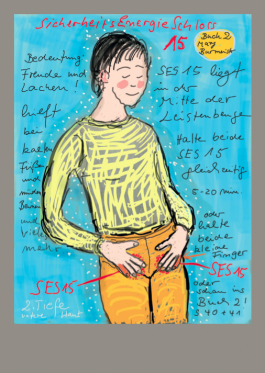 SicherheitsEnergieSchloss
15
Buch 2
Mary
Burmeister
Bedeutung
Freude und
Lachen!
hilft
bei
kalten
Füßen
und
müden
Beinen
und
viel
mehr
SES 15 liegt
in der
Mitte der
Leistenbeuge
Halte beide
SES 15
gleichzeitig
5-20 min.
oder
halte
beide
kleine
Finger
oder
schau ins
Buch 2!
S. 40 + 41
SES 15
SES 15
2. Tiefe
Haut